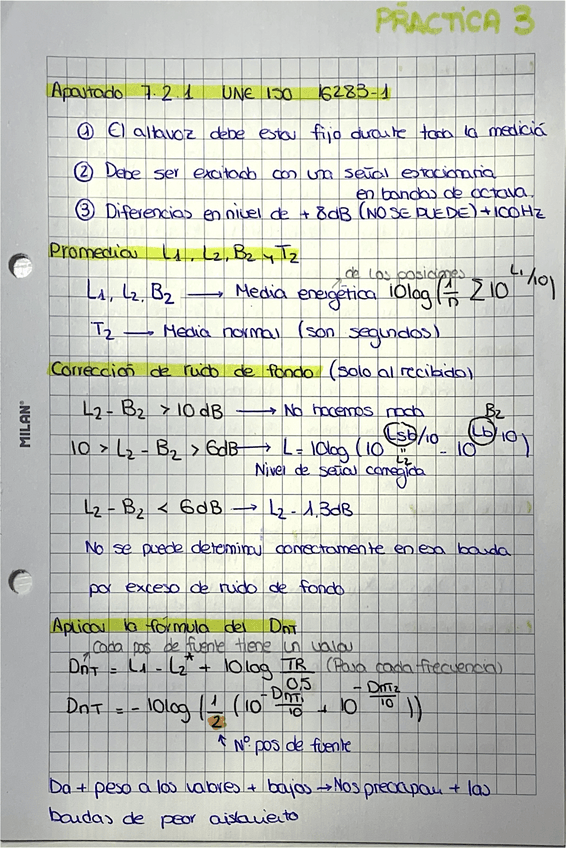 PRACTICA 3
Apartado 7.2.1 UNE ISO 16283-1
① El altavoz debe estar fijo durante toda la medició
② Debe ser excitado con una señal estacionaria
en bandas de octava.
③ Diferencias en nivel de + 8dB (NO SE PUEDE) +100Hz
Promediar L1, L2, B2 y T2
de las posiciones
L1, L2, B2 → Media energética 10log(1/n Σ10^L1/10)
T2 → Media normal (son segundos)
Corrección de ruido de fondo (solo al recibido)
L2 - B2 > 10 dB → No hacemos nada
B2
10 > L2 - B2 > 6dB → L = 10log (10^Lsb/10 - 10^Lb/10)
" L2
Nivel de señal corregida
L2 - B2 < 6dB → L2 - 1,3dB
No se puede determinar correctamente en esa banda
por exceso de ruido de fondo
Aplicar la fórmula del DnT
cada pos de fuente tiene un valor
DnT = L1 - L2* + 10log TR/0,5 (Para cada frecuencia)
DnT = - 10log (1/2 (10^-DnT1/10 + 10^-DnT2/10))
↑ Nº pos de fuente
Da + peso a los valores + bajos → Nos preocupan + las
bandas de peor aislamiento
MILAN®